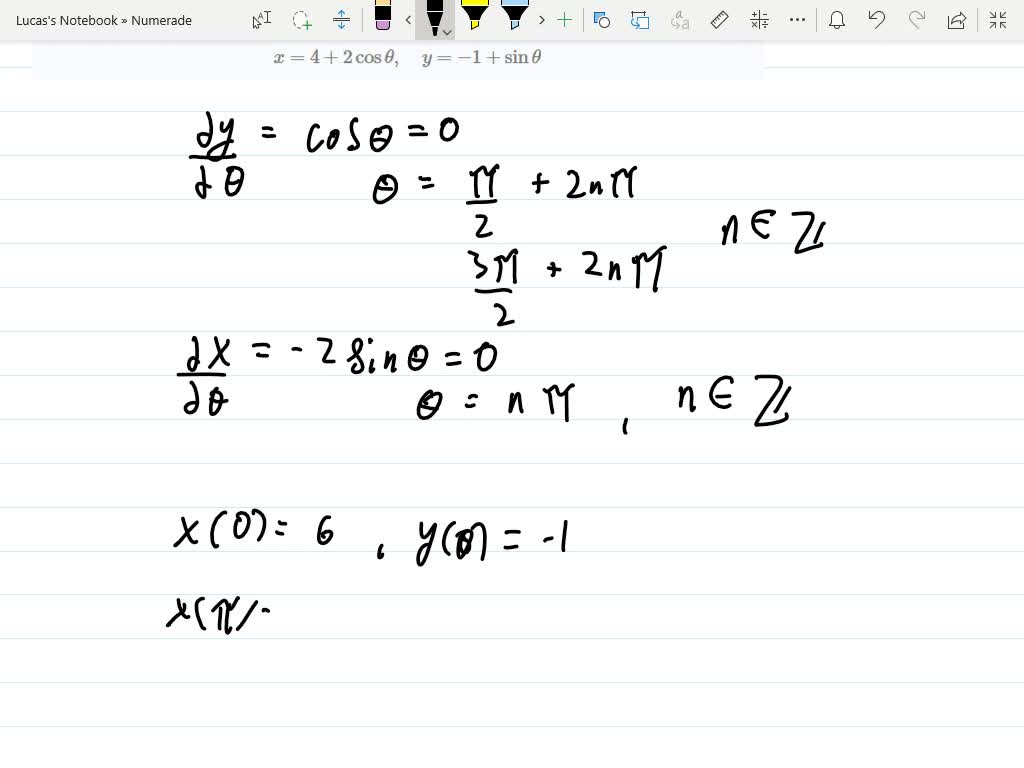 Lucas's Notebook » Numerade
x = 4 + 2 cos θ, y = −1 + sin θ
dy/dθ = cosθ = 0
θ = π/2 + 2nπ
n ∈ ℤ
3π/2 + 2nπ
dx/dθ = -2 sinθ = 0
θ = nπ, n ∈ ℤ
x(0) = 6, y(0) = -1
x(π/